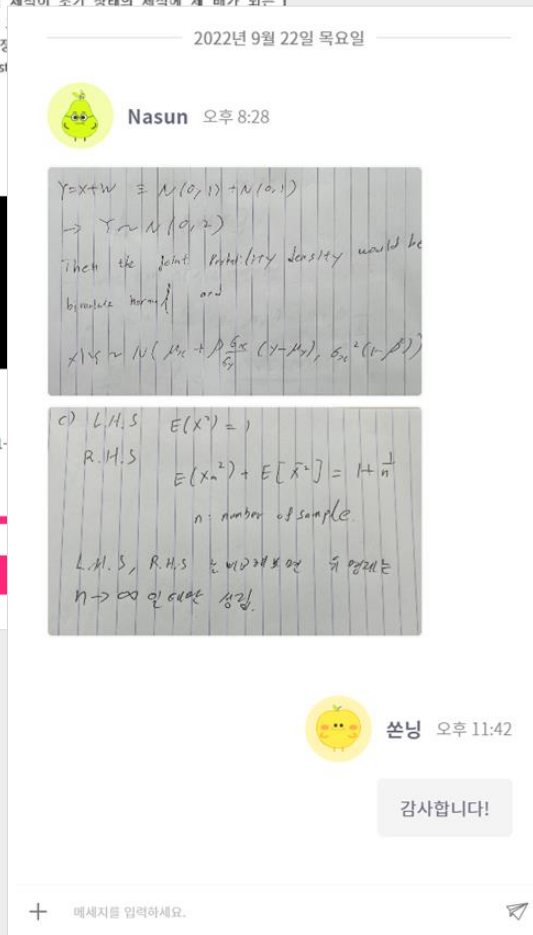 2022년 9월 22일 목요일
Nasun 오후 8:28
Y=X+W ≡ N(0,1)+N(0,1)
→ Y~N(0,2)
Then the joint Probability density would be
bivariate normal and
X|Y ~ N( μx + ρ σx/σy (y-μy), σx²(1-ρ²))
c) L.H.S E(X²) = 1
R.H.S
E(Xn²) + E[X̄²] = 1+ 1/n
n: number of sample.
L.H.S, R.H.S 를 비교해보면 위 명제는
n→∞ 일 때만 성립.
쏜닝 오후 11:42
감사합니다!
메세지를 입력하세요.